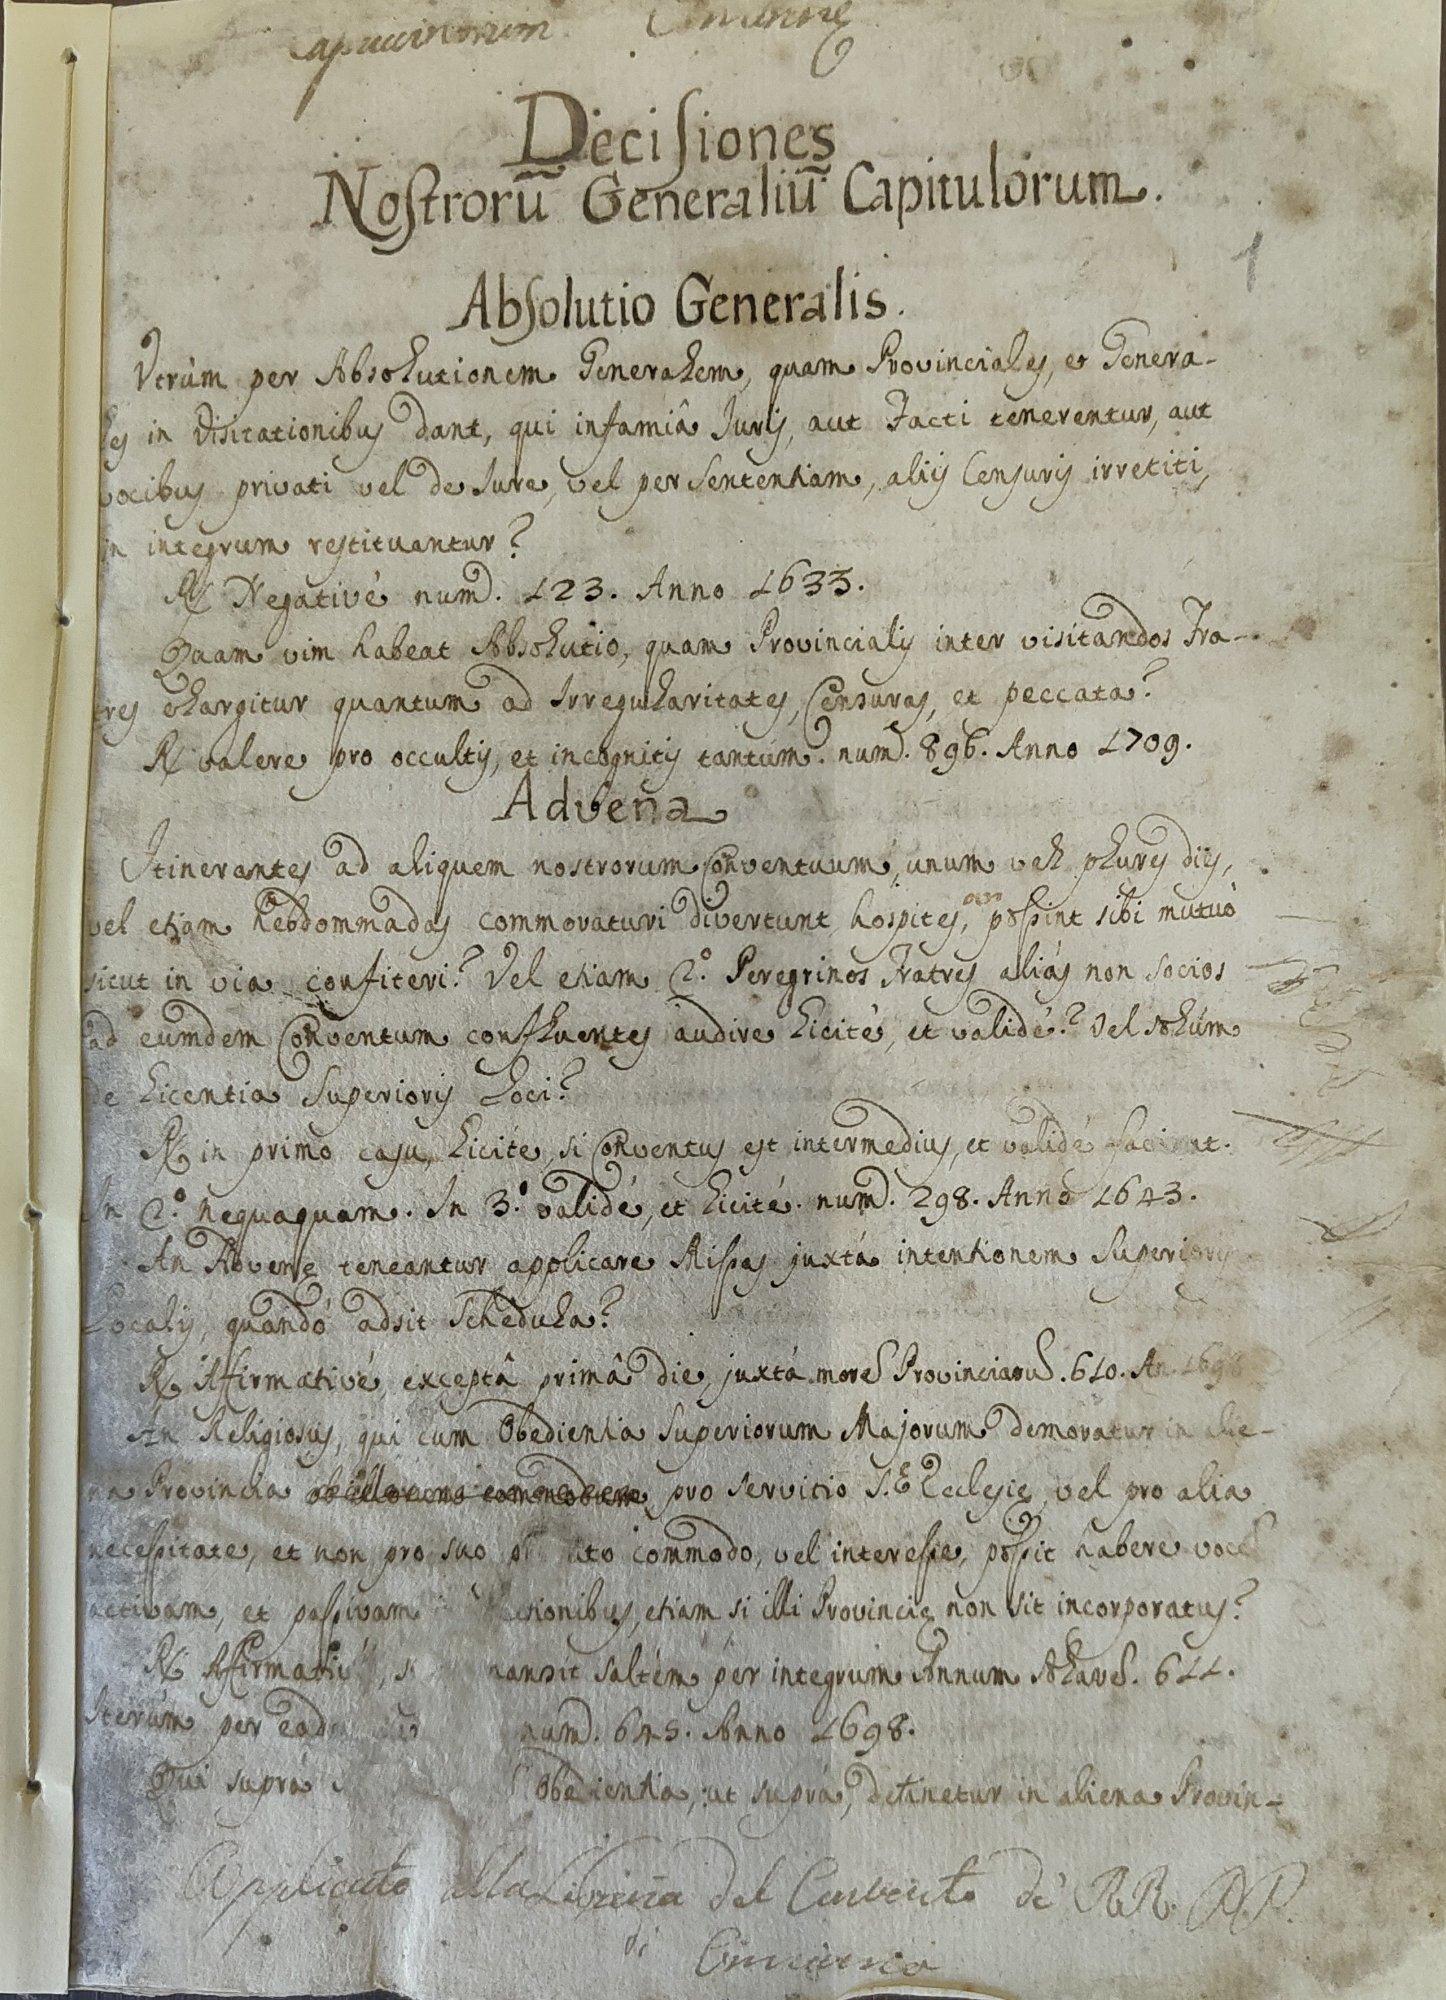 Capuccinorum
Decisiones
Nostrorū Generaliū Capitulorum.
1
Absolutio Generalis.
Utrùm per Absolutionem Generalem, quam Provinciales, et Genera-
les in Visitationibus dant, qui infamiâ Juris, aut Facti tenerentur, aut
vocibus privati vel de Jure, vel per Sententiam, aliis Censuris irretiti,
in integrum restituantur?
R/ Negativè num. 123. Anno 1633.
Quam vim habeat Absolutio, quam Provincialis inter visitandos Fra-
tres elargitur quantum ad Irregularitates, Censuras, et peccata?
R/ valere pro occultis, et incognitis tantùm. num. 896. Anno 1709.
Advena
Itinerantes ad aliquem nostrorum Conventuum, unum vel plures dies,
vel etiam hebdommadas commoraturi divertunt hospites, an possint sibi mutuò
sicut in via confiteri? Vel etiam 2.º Peregrinos Fratres aliàs non socios
ad eumdem Conventum confluentes audire licitè, et validè? Vel solùm
de licentia Superioris Loci?
R/ in primo casu, licitè, si Conventus est intermedius, et validè faciunt.
In 2.º nequaquam. In 3.º validè, et licitè. num. 298. Anno 1643.
An Advenę teneantur applicare Missas juxtà intentionem Superioris
Localis, quandò adsit Schedula?
R/ Affirmativè, exceptâ primâ die, juxtà morem Provinciarum. 610. An. 1698
An Religiosus, qui cum Obedientia Superiorum Majorum demoratur in alie-
na Provincia pro servitio S. Ecclesię, vel pro alia
necessitate, et non pro suo commodo, vel interesse, possit habere vocem
activam, et passivam etiam si illi Provincię non sit incorporatus?
R/ saltèm per integrum Annum 611.
Iterùm per num. 645. Anno 1698.
Qui suprà Obedientia, ut suprà, detinetur in aliena Provin-
Applicato alla Libreria del Convento dè RR. PP.
di